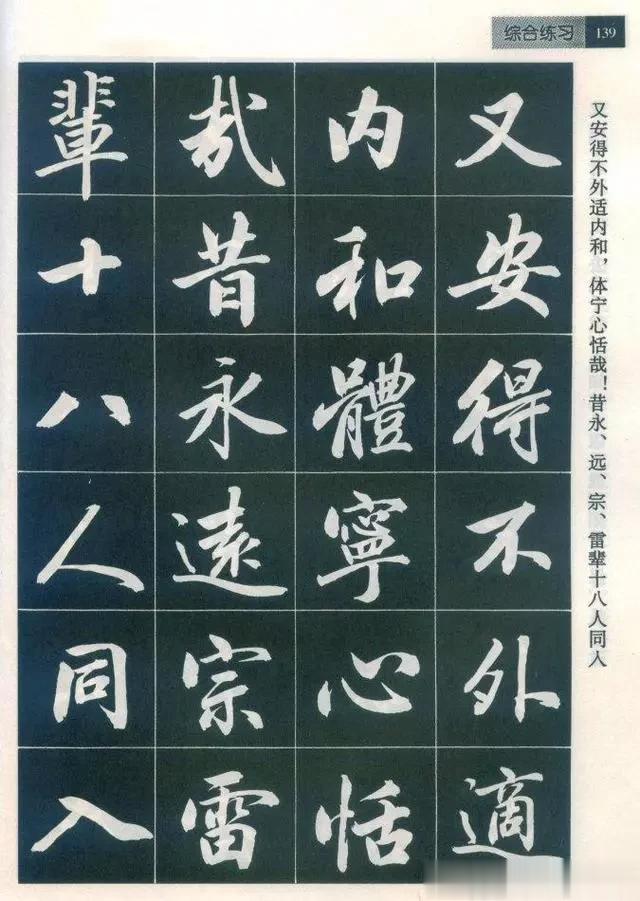 综合练习 139
又安得不外適
内和體寧心恬
哉昔永遠宗雷
輩十八人同入
又安得不外适内和，体宁心恬哉！昔永、远、宗、雷辈十八人同入